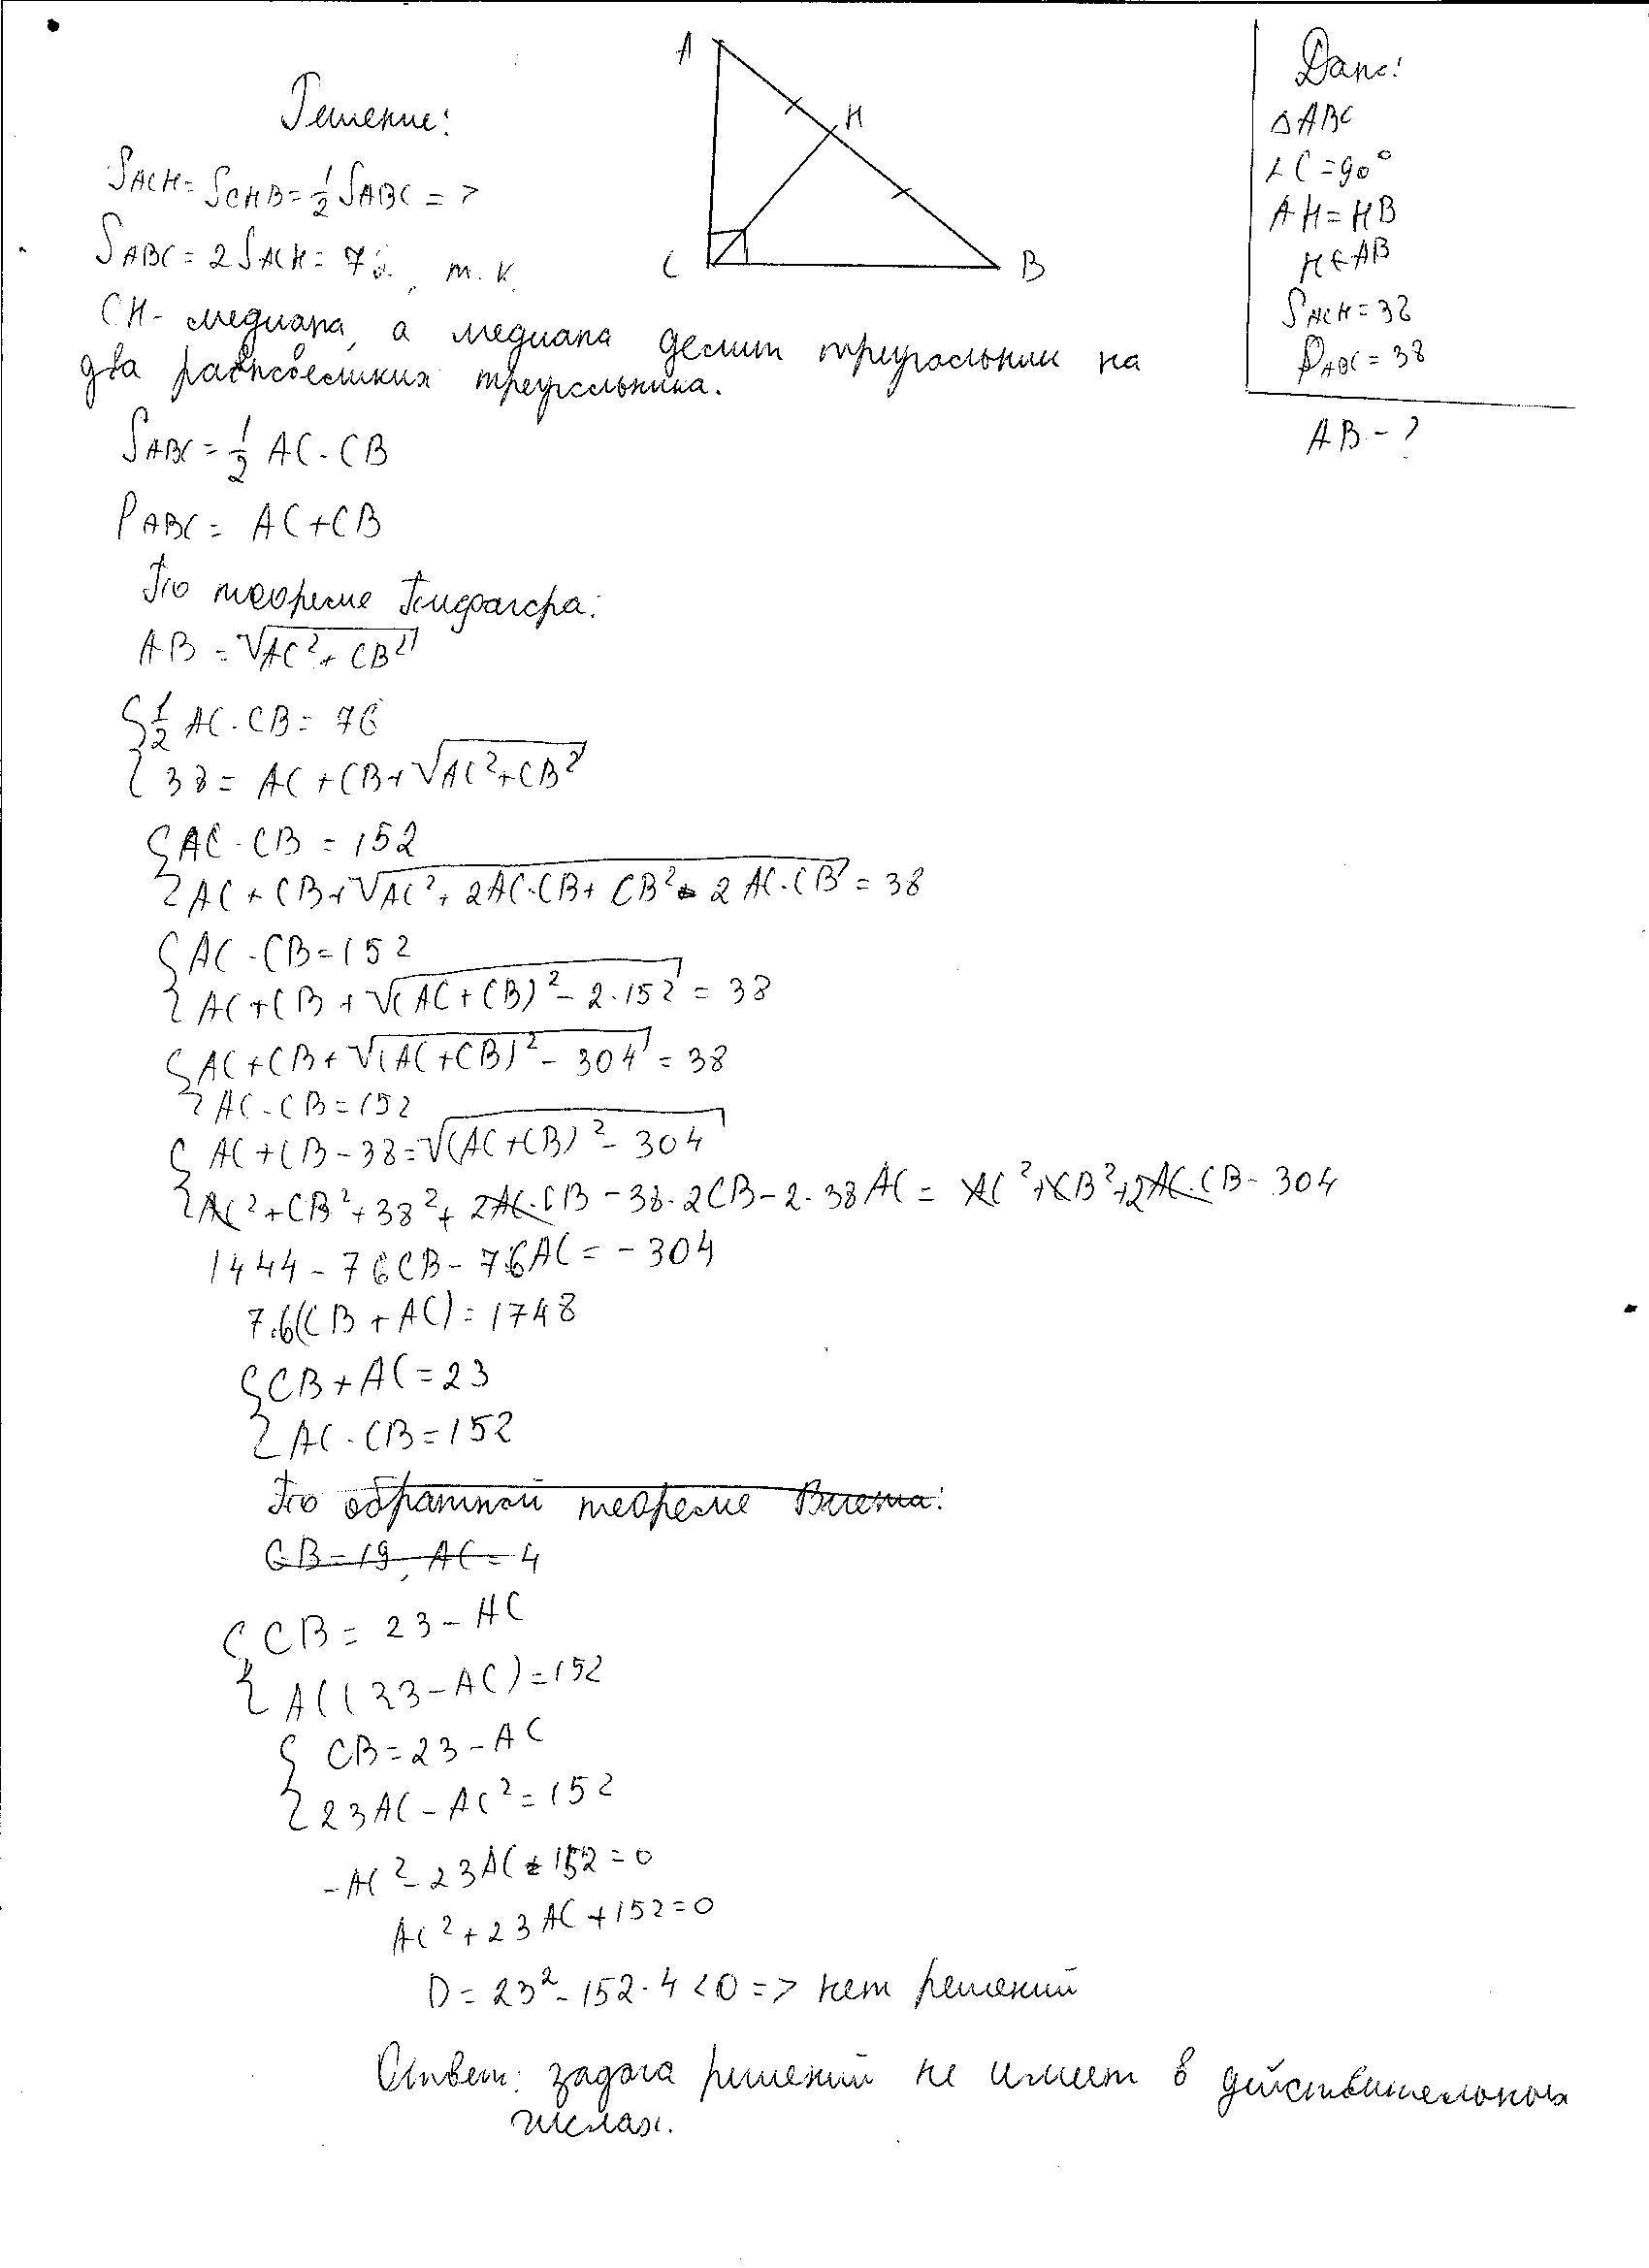 Решение:
S ACH = S CHB = 1/2 S ABC = >
S ABC = 2 S ACH = 76, т.к.
CH - медиана, а медиана делит треугольник на
два равновеликих треугольника.
S ABC = 1/2 AC · CB
P ABC = AC + CB
По теореме Пифагора:
AB = √(AC² + CB²)
{ 1/2 AC · CB = 76
{ 38 = AC + CB + √(AC² + CB²)
{ AC · CB = 152
{ AC + CB + √(AC² + 2AC·CB + CB² - 2AC·CB) = 38
{ AC · CB = 152
{ AC + CB + √((AC + CB)² - 2·152) = 38
{ AC + CB + √((AC + CB)² - 304) = 38
{ AC · CB = 152
{ AC + CB - 38 = √((AC + CB)² - 304)
{ AC² + CB² + 38² + 2AC·CB - 38·2CB - 2·38AC = AC² + CB² + 2AC·CB - 304
1444 - 76CB - 76AC = -304
76(CB + AC) = 1748
{ CB + AC = 23
{ AC · CB = 152
По обратной теореме Виета:
CB = 19, AC = 4
{ CB = 23 - AC
{ AC(23 - AC) = 152
{ CB = 23 - AC
{ 23AC - AC² = 152
-AC² - 23AC - 152 = 0
AC² + 23AC + 152 = 0
D = 23² - 152·4 < 0 => нет решений
Ответ: задача решений не имеет в действительных
числах.
A
H
C
B
Дано:
△ABC
∠C = 90°
AH = HB
H ∈ AB
S ACH = 38
P ABC = 38
AB - ?